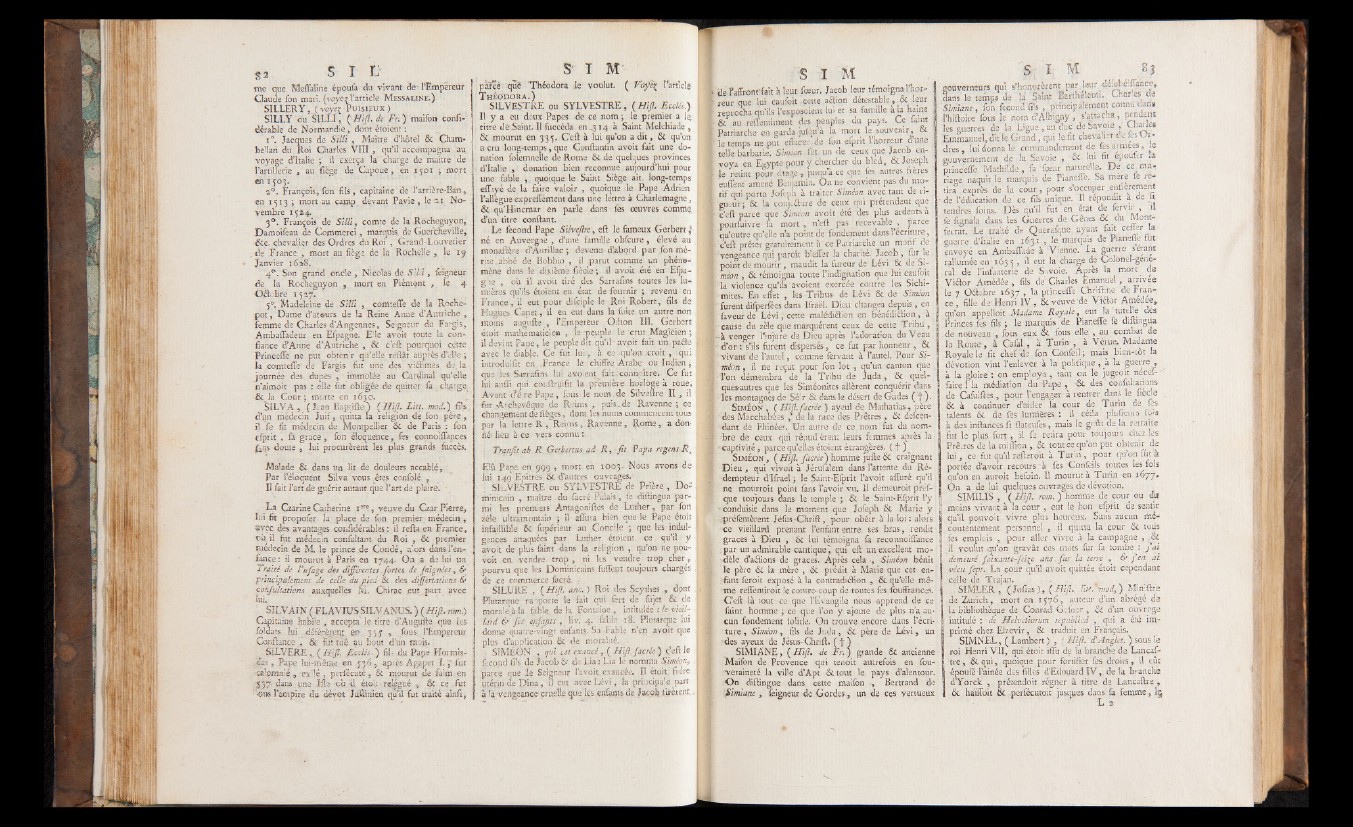 82 S I L
me que Messaline épousa du vivant de l'Empéreur
Claude son mari. (voyez l'article MESSALINE.)
SILLERY, (voyez PUISIEUX)
SILLY ou SILLI, (Hist. de Fr.) maison consi-
dérable de Normandie, dont étoient :
1°. Jacques de Silli, Maître d'hôtel & Cham-
bellan du Roi Charles VIII, qu'il accompagna au
voyage d'Italie ; il exerça la charge de maître de
l'artillerie, au siège de Capoue, en 1501 ; mort
en 1503.
2°. François, son fils, capitaine de l'arrière-Ban,
en 1513 ; mort au camp devant Pavie, le 21 No-
vembre 1524.
3°. François de Silli, comte de la Rocheguyon,
Damoiseau de Commerci, marquis de Guercheville,
&c. chevalier des Ordres du Roi, Grand-Louvetier
de France, mort au siège de la Rochelle, le 19
Janvier 1628.
4°. Son grand oncle, Nicolas de Silli, seigneur
de la Rocheguyon, mort en Piémont, le 4
Octobre 1527.
5°. Madeleine de Silli, comtesse de la Roche-
pot, Dame d'atours de la Reine Anne d'Autriche,
femme de Charles d'Angennes, Seigneur du Fargis,
Ambassadeur en Espagne. Elle avoit toute la con-
fiance d'Anne d'Autriche, & c'est pourquoi cette
Princesse ne put obtenir qu'elle restât auprès d'elle ;
la comtesse de Fargis fut une des victimes de la
journée des dupes, immolée au Cardinal qu'elle
n'aimoit pas : elle fut obligée de quitter sa charge
& la Cour ; morte en 1630.
SILVA, (Jean Baptiste) (Hist. Litt. mod.) fils
d'un médecin Juif, quitta la religion de son père,
il se fit médecin de Montpellier & de Paris : son
esprit, sa grace, son éloquence, ses connoissances
sans doute, lui procurèrent les plus grands succès.
Malade & dans un lit de douleurs accablé,
Par l'éloquent Silva vous êtes consolé,
Il sait l'art de guérir autant que l'art de plaire.
La Czarine Catherine 1ere, veuve du Czar Pierre,
lui fit proposer la place de son premier médecin,
avec des avantages considérables : il resta en France,
où il fut médecin consultant du Roi, & premier
médecin de M. le prince de Condé, alors dans l'en-
fance : il mourut à Paris en 1744. On a de lui un
Traité de l'usage des différentes sortes de saignées, &
principalement de celle du pied & des dissertations &
consultations auxquelles M. Chirac eut part avec
lui.
SILVAIN (FLAVIUS SILVANUS.) (Hist. rom.)
Capitaine habile, accepta le titre d'Auguste que les
soldats lui déférèrent en 355, sous l'Empereur
Constance, & fut tué au bout d'un mois.
SILVERE, (Hist. Ecclés.) fils du Pape Hormis-
das, Pape lui-même en 536, après Agapet I ; fut
calomnié, exilé, persécuté, & mourut de faim en
537 dans une Isle où il étoit relégué, & ce fut
sous l'empire du dévot Justinien qu'il fut traité ainsi,
S I M
parce que Théodora le voulut. (Voyez l'article
THÉODORA.)
SILVESTRE ou SYLVESTRE, (Hist. Ecclés.)
Il y a eu deux Papes de ce nom ; le premier a le
titre de Saint. Il succéda en 314 à Saint Melchiade,
& mourut en 335. C'est à lui qu'on a dit, & qu'on
a cru long-temps, que Constantin avoit fait une do-
nation solemnelle de Rome & de quelques provinces
d'Italie, donation bien reconnue aujourd'hui pour
une fable, quoique le Saint Siège ait long-temps
essayé de la faire valoir, quoique le Pape Adrien
l'allègue expressément dans une lettre à Charlemagne,
& qu'Hincmar en parle dans ses œuvres comme
d'un titre constant.
Le second Pape Silvestre, est le fameux Gerbert,
né en Auvergne, d'une famille obscure, élevé au
monastère d'Aurillac ; devenu d'abord par son mé-
rite abbé de Bobbio, il parut comme un phéno-
mène dans le dixième siècle ; il avoit été en Espa-
gne, où il avoit tiré des Sarrasins toutes les lu-
mières qu'ils étoient en état de fournir ; revenu en
France, il eut pour disciple le Roi Robert, fils de
Hugues Capet, il en eut dans la suite un autre non
moins auguste, l'Empereur Othon III. Gerbert
étoit mathématicien, le peuple le crut Magicien ;
il devint Pape, le peuple dit qu'il avoit fait un pacte
avec le diable. Ce fut lui, à ce qu'on croit, qui
introduisit en France le chiffre Arabe ou Indien,
que les Sarrasins lui avoient fait connoître. Ce fut
lui aussi qui construisit la première horloge à roue.
Avant d'être Pape, sous le nom de Silvestre II, il
fut Archevêque de Reims, puis de Ravenne ; ce
changement de sièges, dont les noms commencent tous
par la lettre R, Reims, Ravenne, Rome, a don-
né lieu à ce vers connu :
Transit ab R Gerbertus ad R, fit Papa regens R,
Elû Pape en 999, mort en 1003. Nous avons de
lui 149 Epitres & d'autres ouvrages.
SILVESTRE ou SYLVESTRE de Prière, Do-
minicain, maître du sacré Palais, se distingua par-
mi les premiers Antagonistes de Luther, par son
zèle ultramontain ; il assura bien que le Pape étoit
infaillible & supérieur au Concile ; que les indul-
gences attaquées par Luther étoient ce qu'il y
avoit de plus saint dans la religion, qu'on ne pou-
voit en vendre trop, ni les vendre trop cher,
pourvu que les Dominicains fussent toujours chargés
de ce commerce sacré.
SILURE, (Hist. anc.) Roi des Scythes, dont
Plutarque rapporte le fait qui sert de sujet & de
morale à la fable de la Fontaine, intitulée : le vieil-
lard & ses enfants, liv. 4. fable 18. Plutarque lui
donne quatre-vingt enfants. Sa Fable n'en avoit que
plus d'application & de moralité.
SIMÉON, qui est exaucé, (Hist. sacrée) c'est le
second fils de Jacob & de Lia : Lia le nomma Siméon,
parce que le Seigneur l'avoit exaucée. Il étoit frère
utérin de Dina, il eut avec Lévi, la principale part
à la vengeance cruelle que les enfants de Jacob tirèrent
S I M
de l'affront fait à leur sœur. Jacob leur témoigna l'hor-
reur que lui causoit cette action détestable, & leur
reprocha qu'ils l'exposoient lui & sa famille à la haine
& au ressentiment des peuples du pays. Ce saint
Patriarche en garda jusqu'à la mort le souvenir, &
le temps ne put effacer de son esprit l'horreur d'une
telle barbarie. Siméon fut un de ceux que Jacob en-
voya en Egypte pour y chercher du bled, & Joseph
le retint pour otage, jusqu'à ce que les autres frères
eussent amené Benjamin. On ne convient pas du mo-
tif qui porta Joseph à traiter Siméon avec tant de ri-
gueur ; & la conjecture de ceux qui prétendent que
c'est parce que Siméon avoit été des plus ardents à
poursuivre sa mort, n'est pas recevable, parce
qu'outre qu'elle n'a point de fondement dans l'Écriture,
c'est prêter gratuitement à ce Patriarche un motif de
vengeance qui paroît blesser la charité. Jacob, sur le
point de mourir, maudit la fureur de Lévi & de Si-
méon, & témoigna toute l'indignation que lui causoit
la violence qu'ils avoient exercée contre les Sichi-
mites. En effet, les Tribus de Lévi & de Siméon
furent dispersées dans Israël. Dieu changea depuis, en
faveur de Lévi, cette malédiction en bénédiction, à
cause du zèle que marquèrent ceux de cette Tribu,
à venger l'injure de Dieu après l'adoration du Veau
d'or : s'ils furent dispersés, ce fut par honneur, &
vivant de l'autel, comme servant à l'autel. Pour Si-
méon, il ne reçut pour son lot, qu'un canton que
l'on démembra de la Tribu de Juda, & quel-
ques-autres que les Siméonites allèrent conquérir dans
les montagnes de Séir & dans le désert de Gades (†).
SIMÉON, (Hist. sacrée) ayeul de Mathatias, père
des Macchabées, de la race des Prêtres, & descen-
dant de Phinées. Un autre de ce nom fut du nom-
bre de ceux qui répudièrent leurs femmes après la
captivité, parce qu'elles étoient étrangères. (†)
SIMÉON, (Hist. sacrée) homme juste & craignant
Dieu, qui vivoit à Jérusalem dans l'attente du Ré-
dempteur d'Israel ; le Saint-Esprit l'avoit assuré qu'il
ne mourroit point sans l'avoir vu. Il demeuroit pres-
que toujours dans le temple ; & le Saint-Esprit l'y
conduisit dans le moment que Joseph & Marie y
présentèrent Jesus-Christ, pour obéir à la loi : alors
ce vieillard prenant l'enfant entre ses bras, rendit
graces à Dieu, & lui témoigna sa reconnoissance
par un admirable cantique, qui est un excellent mo-
dèle d'actions de graces. Après cela, Siméon bénit
le père & la mère, & prédit à Marie que cet en-
fant seroit exposé à la contradiction, & qu'elle mê-
me ressentiroit le contre-coup de toutes ses souffrances.
C'est là tout ce que l'Evangile nous apprend de ce
saint homme ; ce que l'on y ajoute de plus n'a au-
cun fondement solide. On trouve encore dans l'écri-
ture, Siméon, fils de Juda, & père de Lévi, un
des ayeux de Jésus-Christ. (†)
SIMIANE, (Hist. de Fr.) grande & ancienne
Maison de Provence qui tenoit autrefois en sou-
veraineté la ville d'Apt & tout le pays d'alentour.
On distingue dans cette maison, Bertrand de
Simiane, seigneur de Gordes, un de ces vertueux
S I M 83
gouverneurs qui s'honorèrent par leur désobéissance,
dans le temps de la Saint Barthélemi. Charles de
Simiane, son second fils, principalement connu dans
l'histoire sous le nom d'Albigny, s'attacha, pendant
les guerres de la Ligue, au duc de Savoie, Charles
Emmanuel, dit le Grand, qui le fit chevalier de ses Or-
dres, lui donna le commandement de ses armées, le
gouvernement de la Savoie, & lui fit épouser la
princesse Mathilde, sa sœur naturelle. De ce ma-
riage naquit le marquis de Pianesse. Sa mère se re-
tira exprès de la cour, pour s'occuper entièrement
de l'éducation de ce fils unique. Il répondit à de si
tendres soins. Dès qu'il fut en état de servir, il
se signala dans les Guerres de Gênes & du Mont-
ferrat. Le traité de Querasque ayant fait cesser la
guerre d'Italie en 1631, le marquis de Pianesse fut
envoyé en Ambassade à Vienne. La guerre s'étant
rallumée en 1635, il eut la charge de Colonel-géné-
ral de l'infanterie de Savoie. Après la mort de
Victor Amédée, fils de Charles Emanuel, arrivée
le 7 Octobre 1637, la princesse Christine de Fran-
ce, fille de Henri IV, & veuve de Victor Amédée,
qu'on appelloit Madame Royale, eut la tutelle des
Princes ses fils ; le marquis de Pianesse se distingua
de nouveau, sous eux & sous elle, au combat de
la Route, à Casal, à Turin, à Vérue. Madame
Royale le fit chef de son Conseil ; mais bien-tôt la
dévotion vint l'enlever à la politique, à la guerre,
à la gloire : on employa, tant on le jugeoit néces-
saire ! la médiation du Pape, & des consultations
de Casuistes, pour l'engager à rentrer dans le siècle
& à continuer d'aider la cour de Turin de ses
talents & de ses lumières : il céda plusieurs fois
à des instances si flateuses, mais le goût de la retraite
fut le plus fort, il se retira pour toujours chez les
Prêtres de la mission, & tout ce qu'on put obtenir de
lui, ce fut qu'il resteroit à Turin, pour qu'on fût à
portée d'avoir recours à ses Conseils toutes les fois
qu'on en auroit besoin. Il mourut à Turin en 1677.
On a de lui quelques ouvrages de dévotion.
SIMILIS, (Hist. rom.) homme de cour ou du
moins vivant à la cour, eut le bon esprit de sentir
qu'il pouvoit vivre plus heureux. Sans aucun mé-
contentement personnel, il quitta la cour & tous
ses emplois, pour aller vivre à la campagne, &
il voulut qu'on gravât ces mots sur sa tombe : j'ai
demeuré soixante-seize ans sur la terre, & j'en ai
vécu sept. La cour qu'il avoit quittée étoit cependant
celle de Trajan.
SIMLER, (Josias), (Hist. Litt. mod.) Ministre
de Zurich, mort en 1576, auteur d'un abrégé de
la bibliothèque de Conrad Gesner, & d'un ouvrage
intitulé : de Helvetiorum republicâ, qui a été im-
primé chez Elzevir, & traduit en Français.
SIMNEL, (Lambert), (Hist. d'Anglet.) sous le
roi Henri VII, qui étoit issu de la branche de Lancas-
tre, & qui, quoique pour fortifier ses droits, il eût
épousé l'ainée des filles d'Edouard IV, de la branche
d'Yorck, prétendoit régner à titre de Lancastre,
& haïssoit & persécutoit jusques dans sa femme, la
L 2